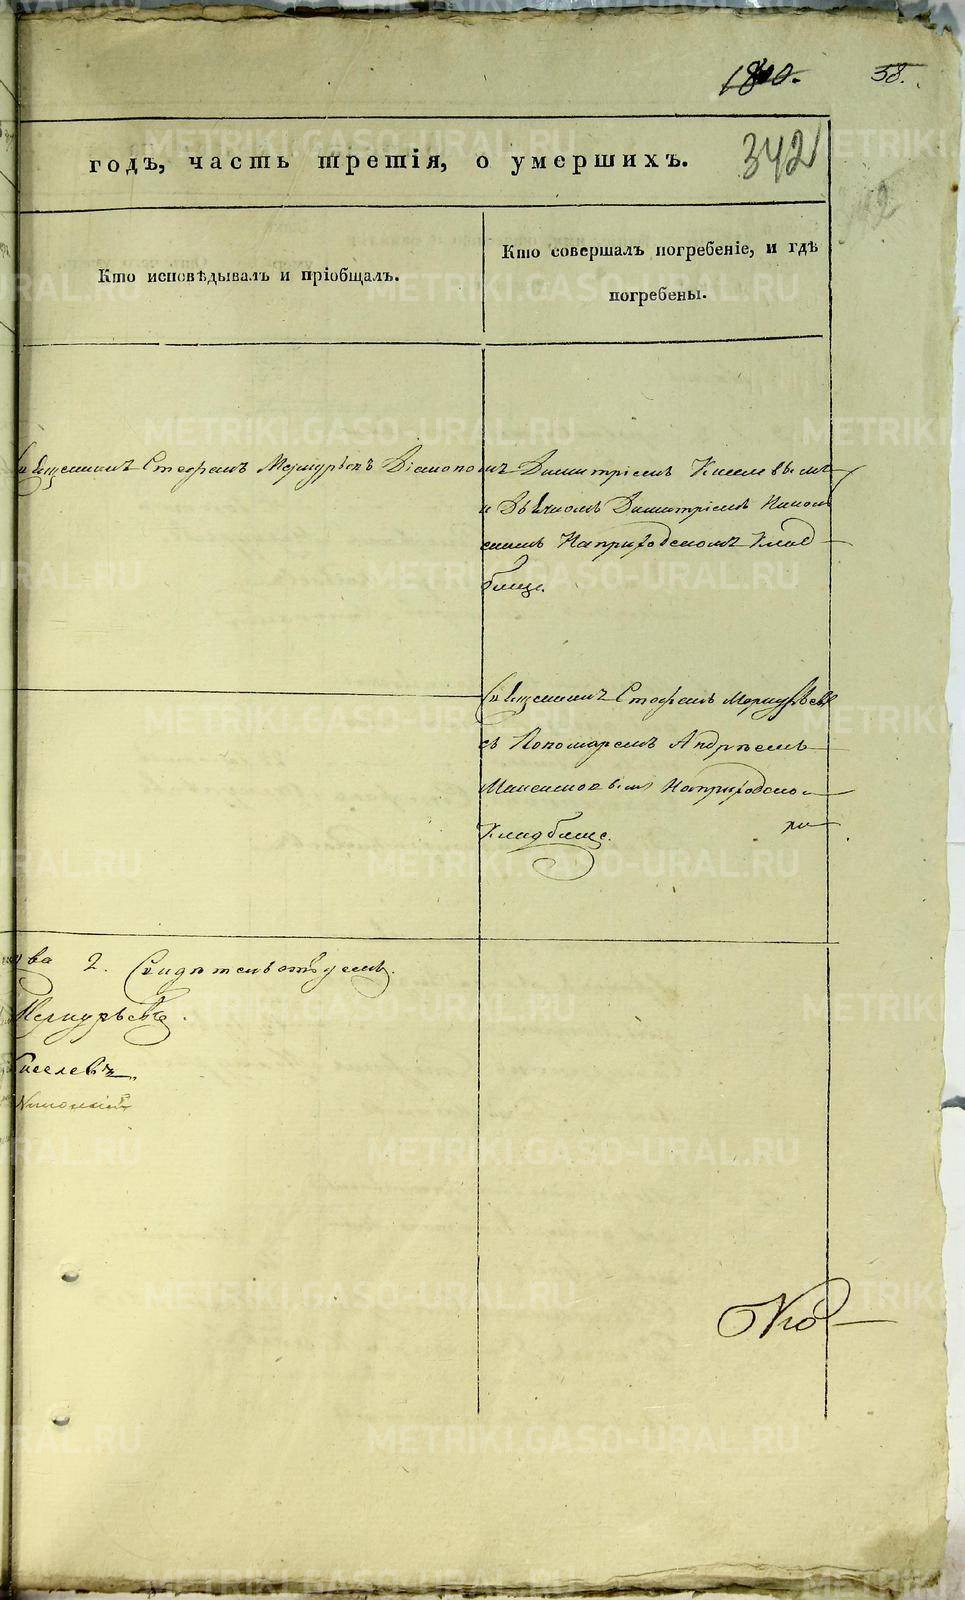 58.
годъ, часть третія, о умершихъ.
342
Кто исповѣдывалъ и пріобщалъ.
Кто совершалъ погребеніе, и гдѣ
погребены.
Священникъ Стефанъ Меркурьевъ Діакономъ Димитріемъ Киселевымъ
и Дьячкомъ Димитріемъ
На приходскомъ Клад
бище.
Священникъ Стефанъ Меркурьевъ
съ Пономаремъ Андреемъ
Максимовымъ На приходско
мъ
Кладбище.
2. Свидѣтельствуемъ.
Меркурьевъ.
Киселевъ
METRIKI.GASO-URAL.RU